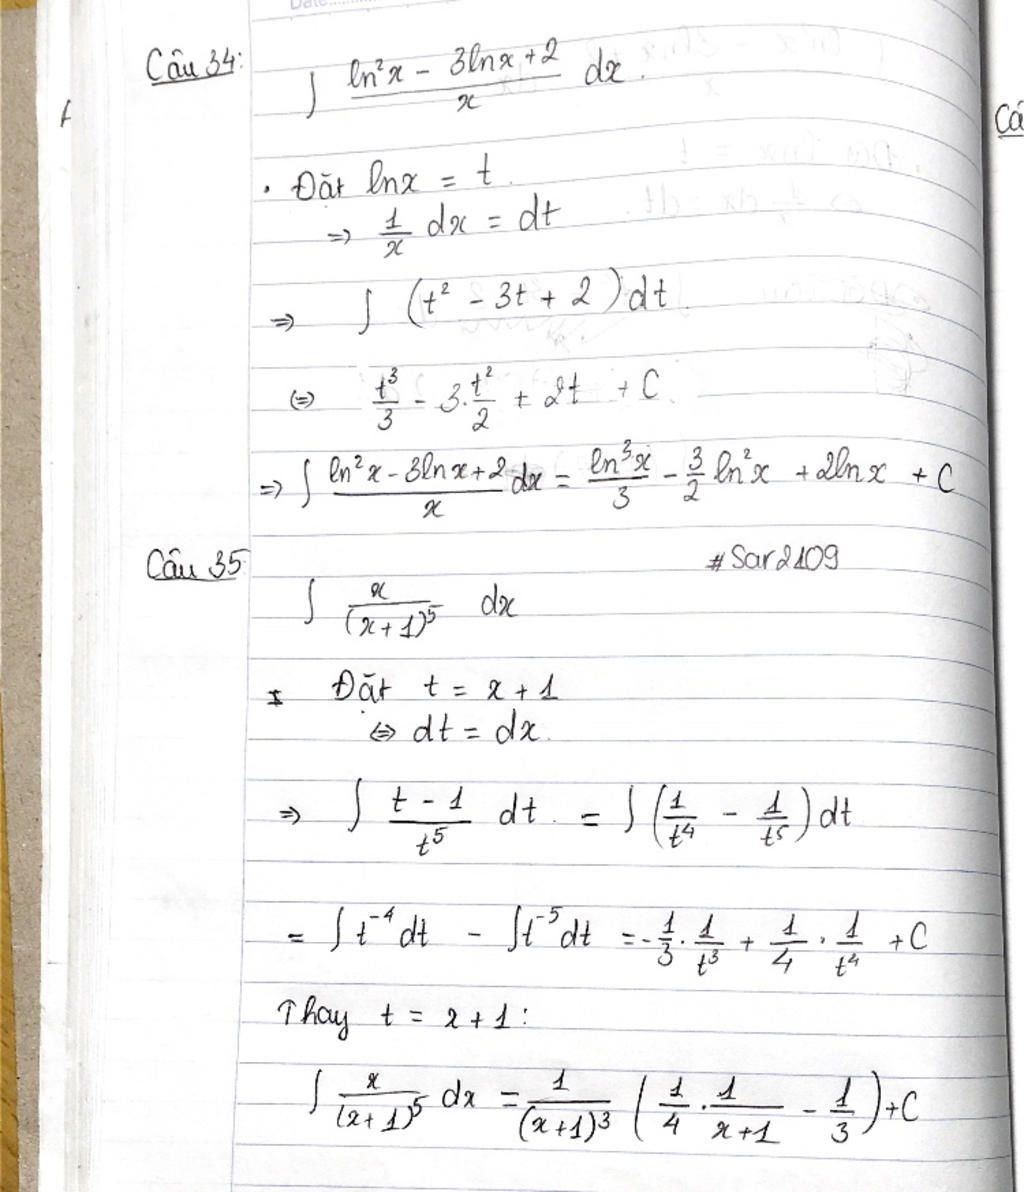 Date
Câu 34:
∫ (ln²x - 3lnx + 2)/x dx.
• Đặt lnx = t.
⇒ 1/x dx = dt
⇒ ∫ (t² - 3t + 2) dt.
⇔ t³/3 - 3.t²/2 + 2t + C.
⇒ ∫ (ln²x - 3lnx + 2)/x dx = ln³x/3 - 3/2 ln²x + 2lnx + C
Câu 35
#Sar2109
∫ x/(x+1)⁵ dx
Đặt t = x + 1
⇔ dt = dx.
⇒ ∫ (t - 1)/t⁵ dt. = ∫ (1/t⁴ - 1/t⁵) dt
= ∫ t⁻⁴ dt - ∫ t⁻⁵ dt = -1/3 . 1/t³ + 1/4 . 1/t⁴ + C
Thay t = x + 1:
∫ x/(x+1)⁵ dx = 1/(x+1)³ (1/4 . 1/(x+1) - 1/3) + C
Câ